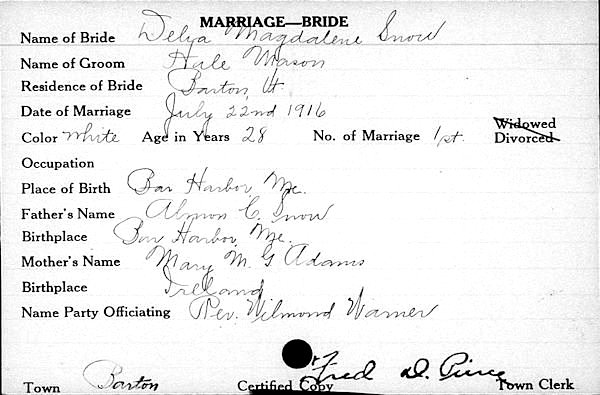 MARRIAGE—BRIDE
Name of Bride Delya Magdalene Snow
Name of Groom Hale Mason
Residence of Bride Barton, Vt
Date of Marriage July 22nd 1916
Color White Age in Years 28 No. of Marriage 1st. Widowed
Divorced
Occupation
Place of Birth Bar Harbor, Me.
Father's Name Almon C. Snow
Birthplace Bar Harbor, Me.
Mother's Name Mary M. G Adams
Birthplace Ireland
Name Party Officiating Rev. Wilmond Warner
Town Barton Certified Copy Fred D. Pierce Town Clerk